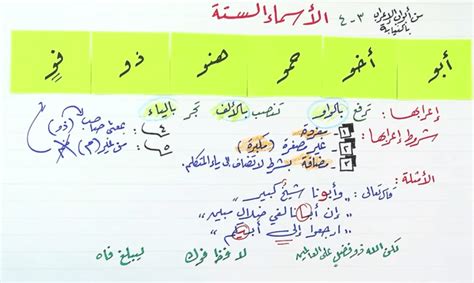 من أبواب الإعراب بالنيابة ٣-٤ الأسماء الستة
أبو أخو حمو هنو ذو فو
إعرابها: ترفع بالواو تنصب بالألف تجر بالياء
شروط إعرابها: ١- مفردة ٤- بمعنى صاحب (ذو)
٢- غير مصغرة (مكبرة) ٥- من غير (م)
٣- مضافة بشرط لا تضاف إلى ياء المتكلم.
الأمثلة:
قال تعالى: "وأبونا شيخ كبير"
"إن أبانا لفي ضلال مبين"
"ارجعوا إلى أبيكم"
لكن الله ذو فضل على العالمين لا فض فوك ليبلغ فاه